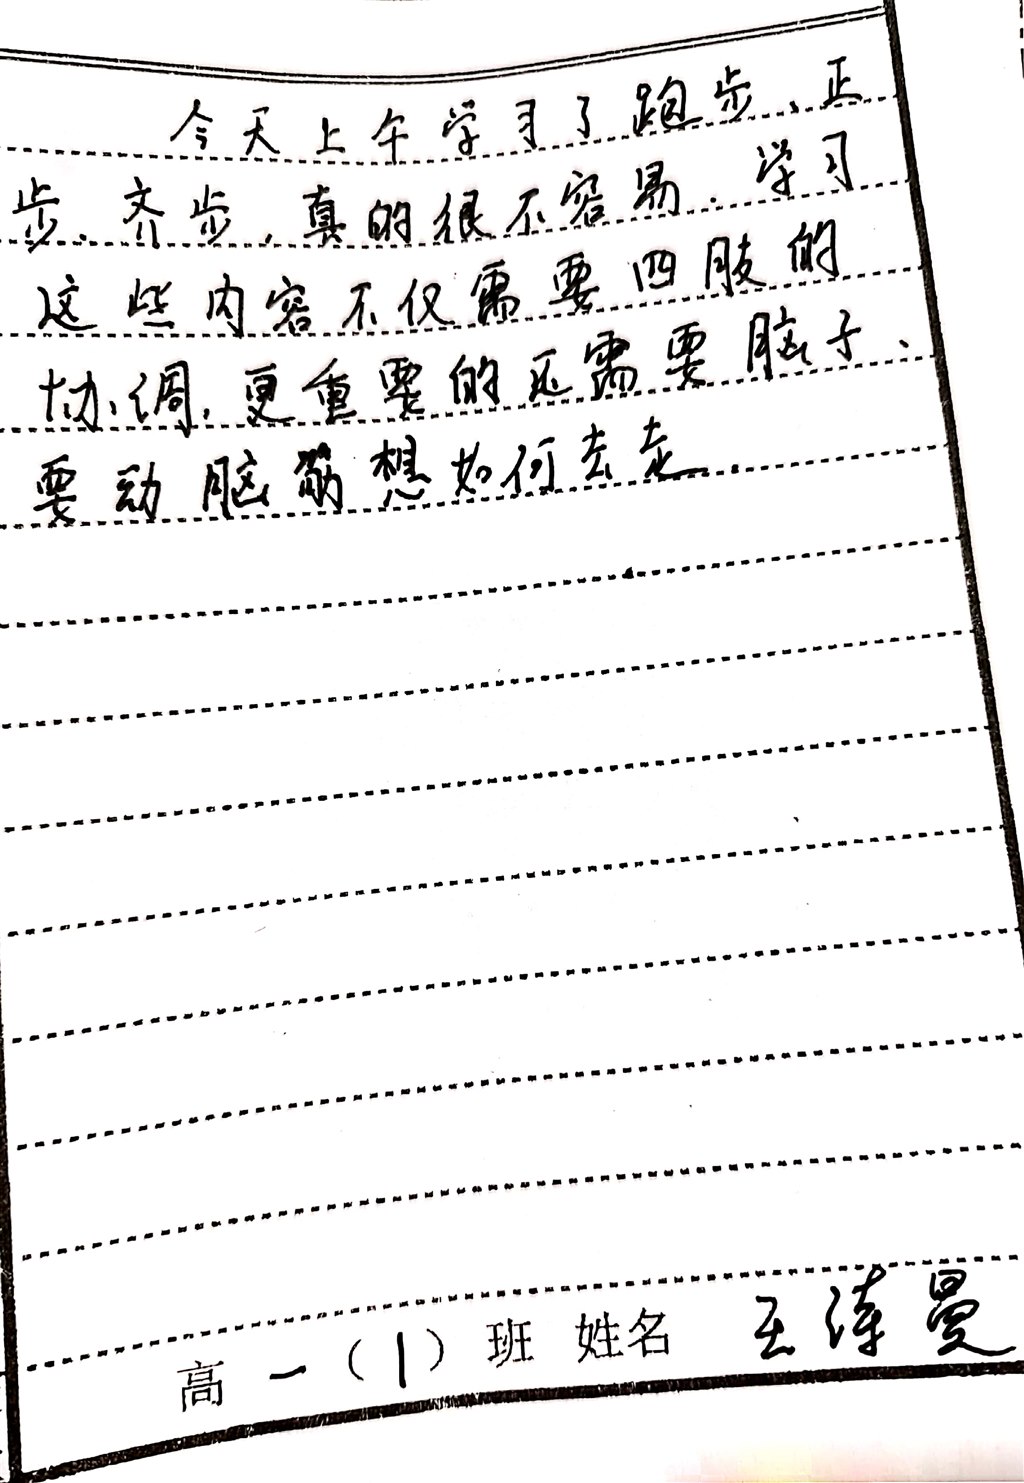 今天上午学习了跑步、正
步、齐步,真的很不容易.学习
这些内容不仅需要四肢的
协调,更重要的还需要脑子、
要动脑筋想如何去走.
高一(1)班 姓名 王 曼